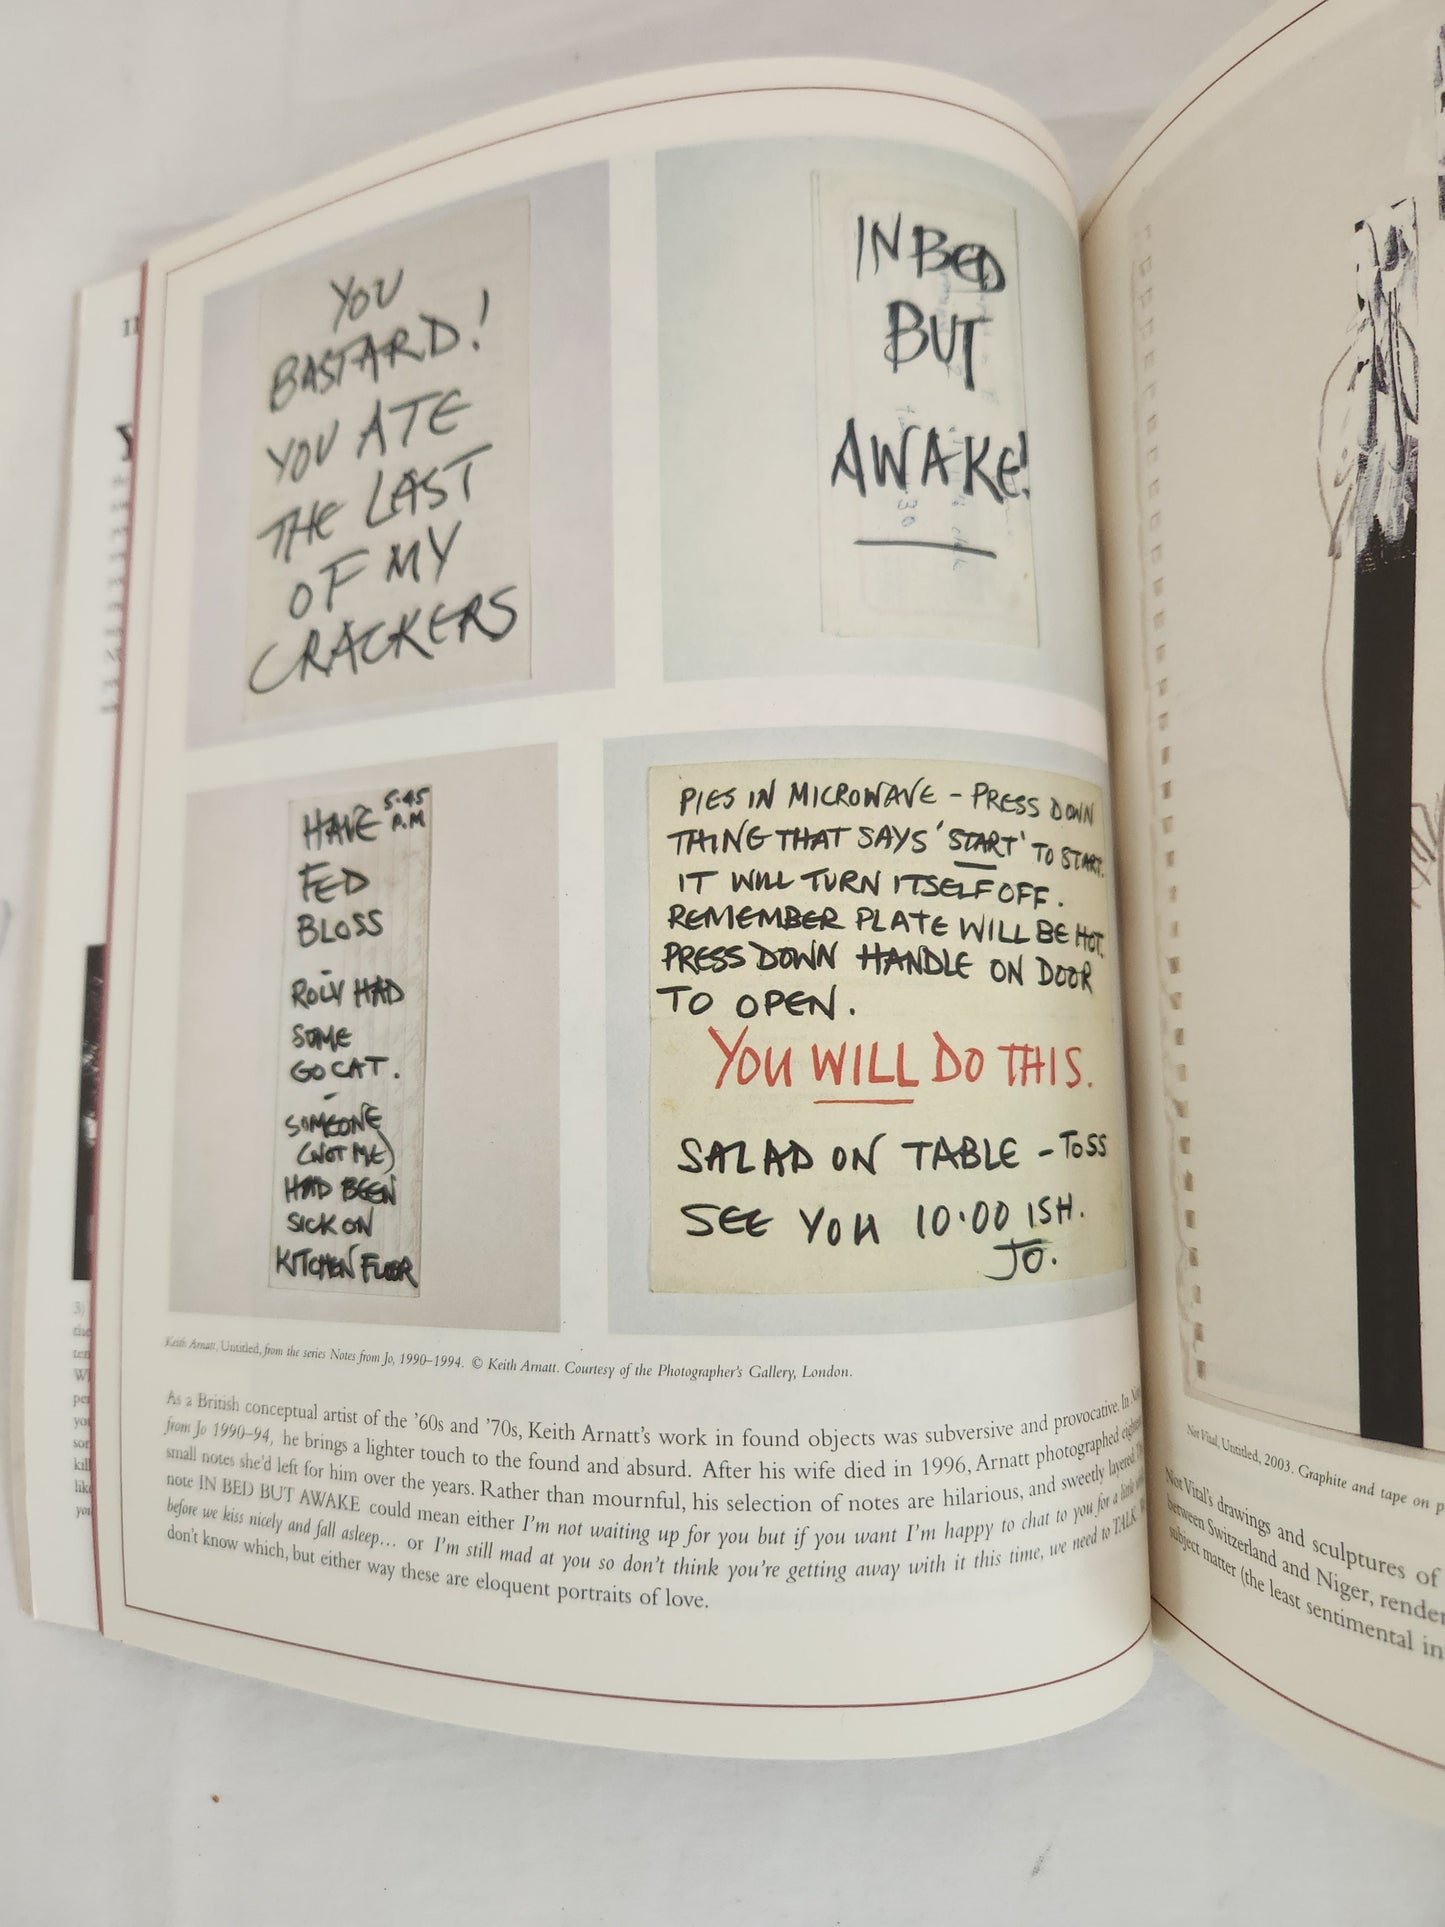 YOU
BASTARD!
YOU ATE
THE LAST
OF MY
CRACKERS
IN BED
BUT
AWAKE!
HAVE 5.45 P.M
FED
BLOSS
-
ROLY HAD
SOME
GO CAT.
-
SOMEONE
(NOT ME)
HAD BEEN
SICK ON
KITCHEN FLOOR
PIES IN MICROWAVE - PRESS DOWN
THING THAT SAYS 'START' TO START.
IT WILL TURN ITSELF OFF.
REMEMBER PLATE WILL BE HOT.
PRESS DOWN HANDLE ON DOOR
TO OPEN.
YOU WILL DO THIS.
SALAD ON TABLE - TOSS
SEE YOU 10.00 ISH.
JO.
Keith Arnatt, Untitled, from the series Notes from Jo, 1990–1994. © Keith Arnatt. Courtesy of the Photographer's Gallery, London.
As a British conceptual artist of the '60s and '70s, Keith Arnatt's work in found objects was subversive and provocative. In
from Jo 1990–94, he brings a lighter touch to the found and absurd. After his wife died in 1996, Arnatt photographed
small notes she'd left for him over the years. Rather than mournful, his selection of notes are hilarious, and sweetly layered.
note IN BED BUT AWAKE could mean either I'm not waiting up for you but if you want I'm happy to chat to you for a little
before we kiss nicely and fall asleep... or I'm still mad at you so don't think you're getting away with it this time, we need to TALK.
don't know which, but either way these are eloquent portraits of love.
Not Vital, Untitled, 2003. Graphite and tape on
Not Vital's drawings and sculptures of
between Switzerland and Niger, render
subject matter (the least sentimental in